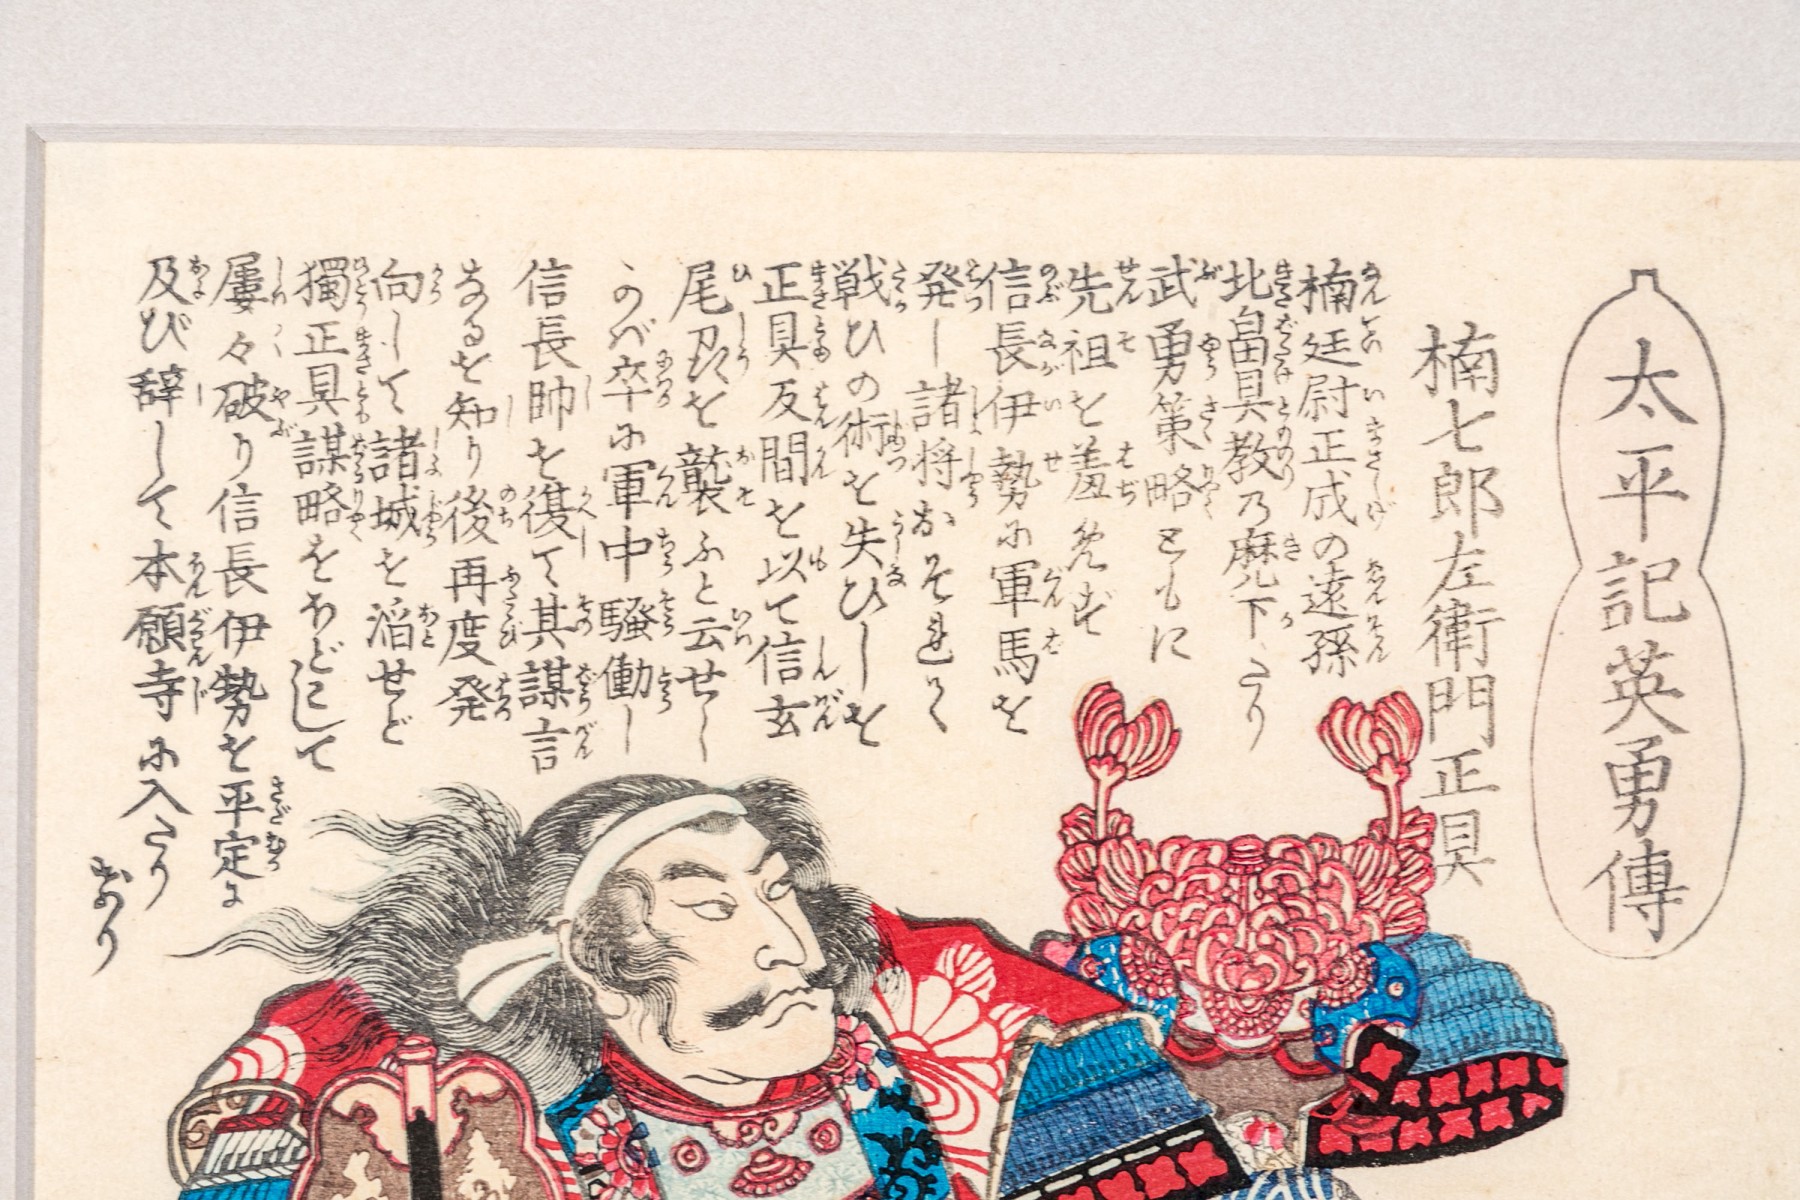 太平記英勇傳
楠七郎左衛門正具
楠廷尉正成の遠孫
北畠具教乃麾下たり
武勇策略ともに
先祖を羞しめず
信長伊勢に軍馬を
発し諸将おそれく
戦ひの術を失ひしを
正具反間を以て信玄
尾州を襲ふと云せし
かバ卒に軍中騒働し
信長帥を復て其謀言
なるを知り後再度発
向して諸城を陷せど
獨正具謀略をほどこして
屢々破り信長伊勢を平定に
及び辞して本願寺に入たり
けり